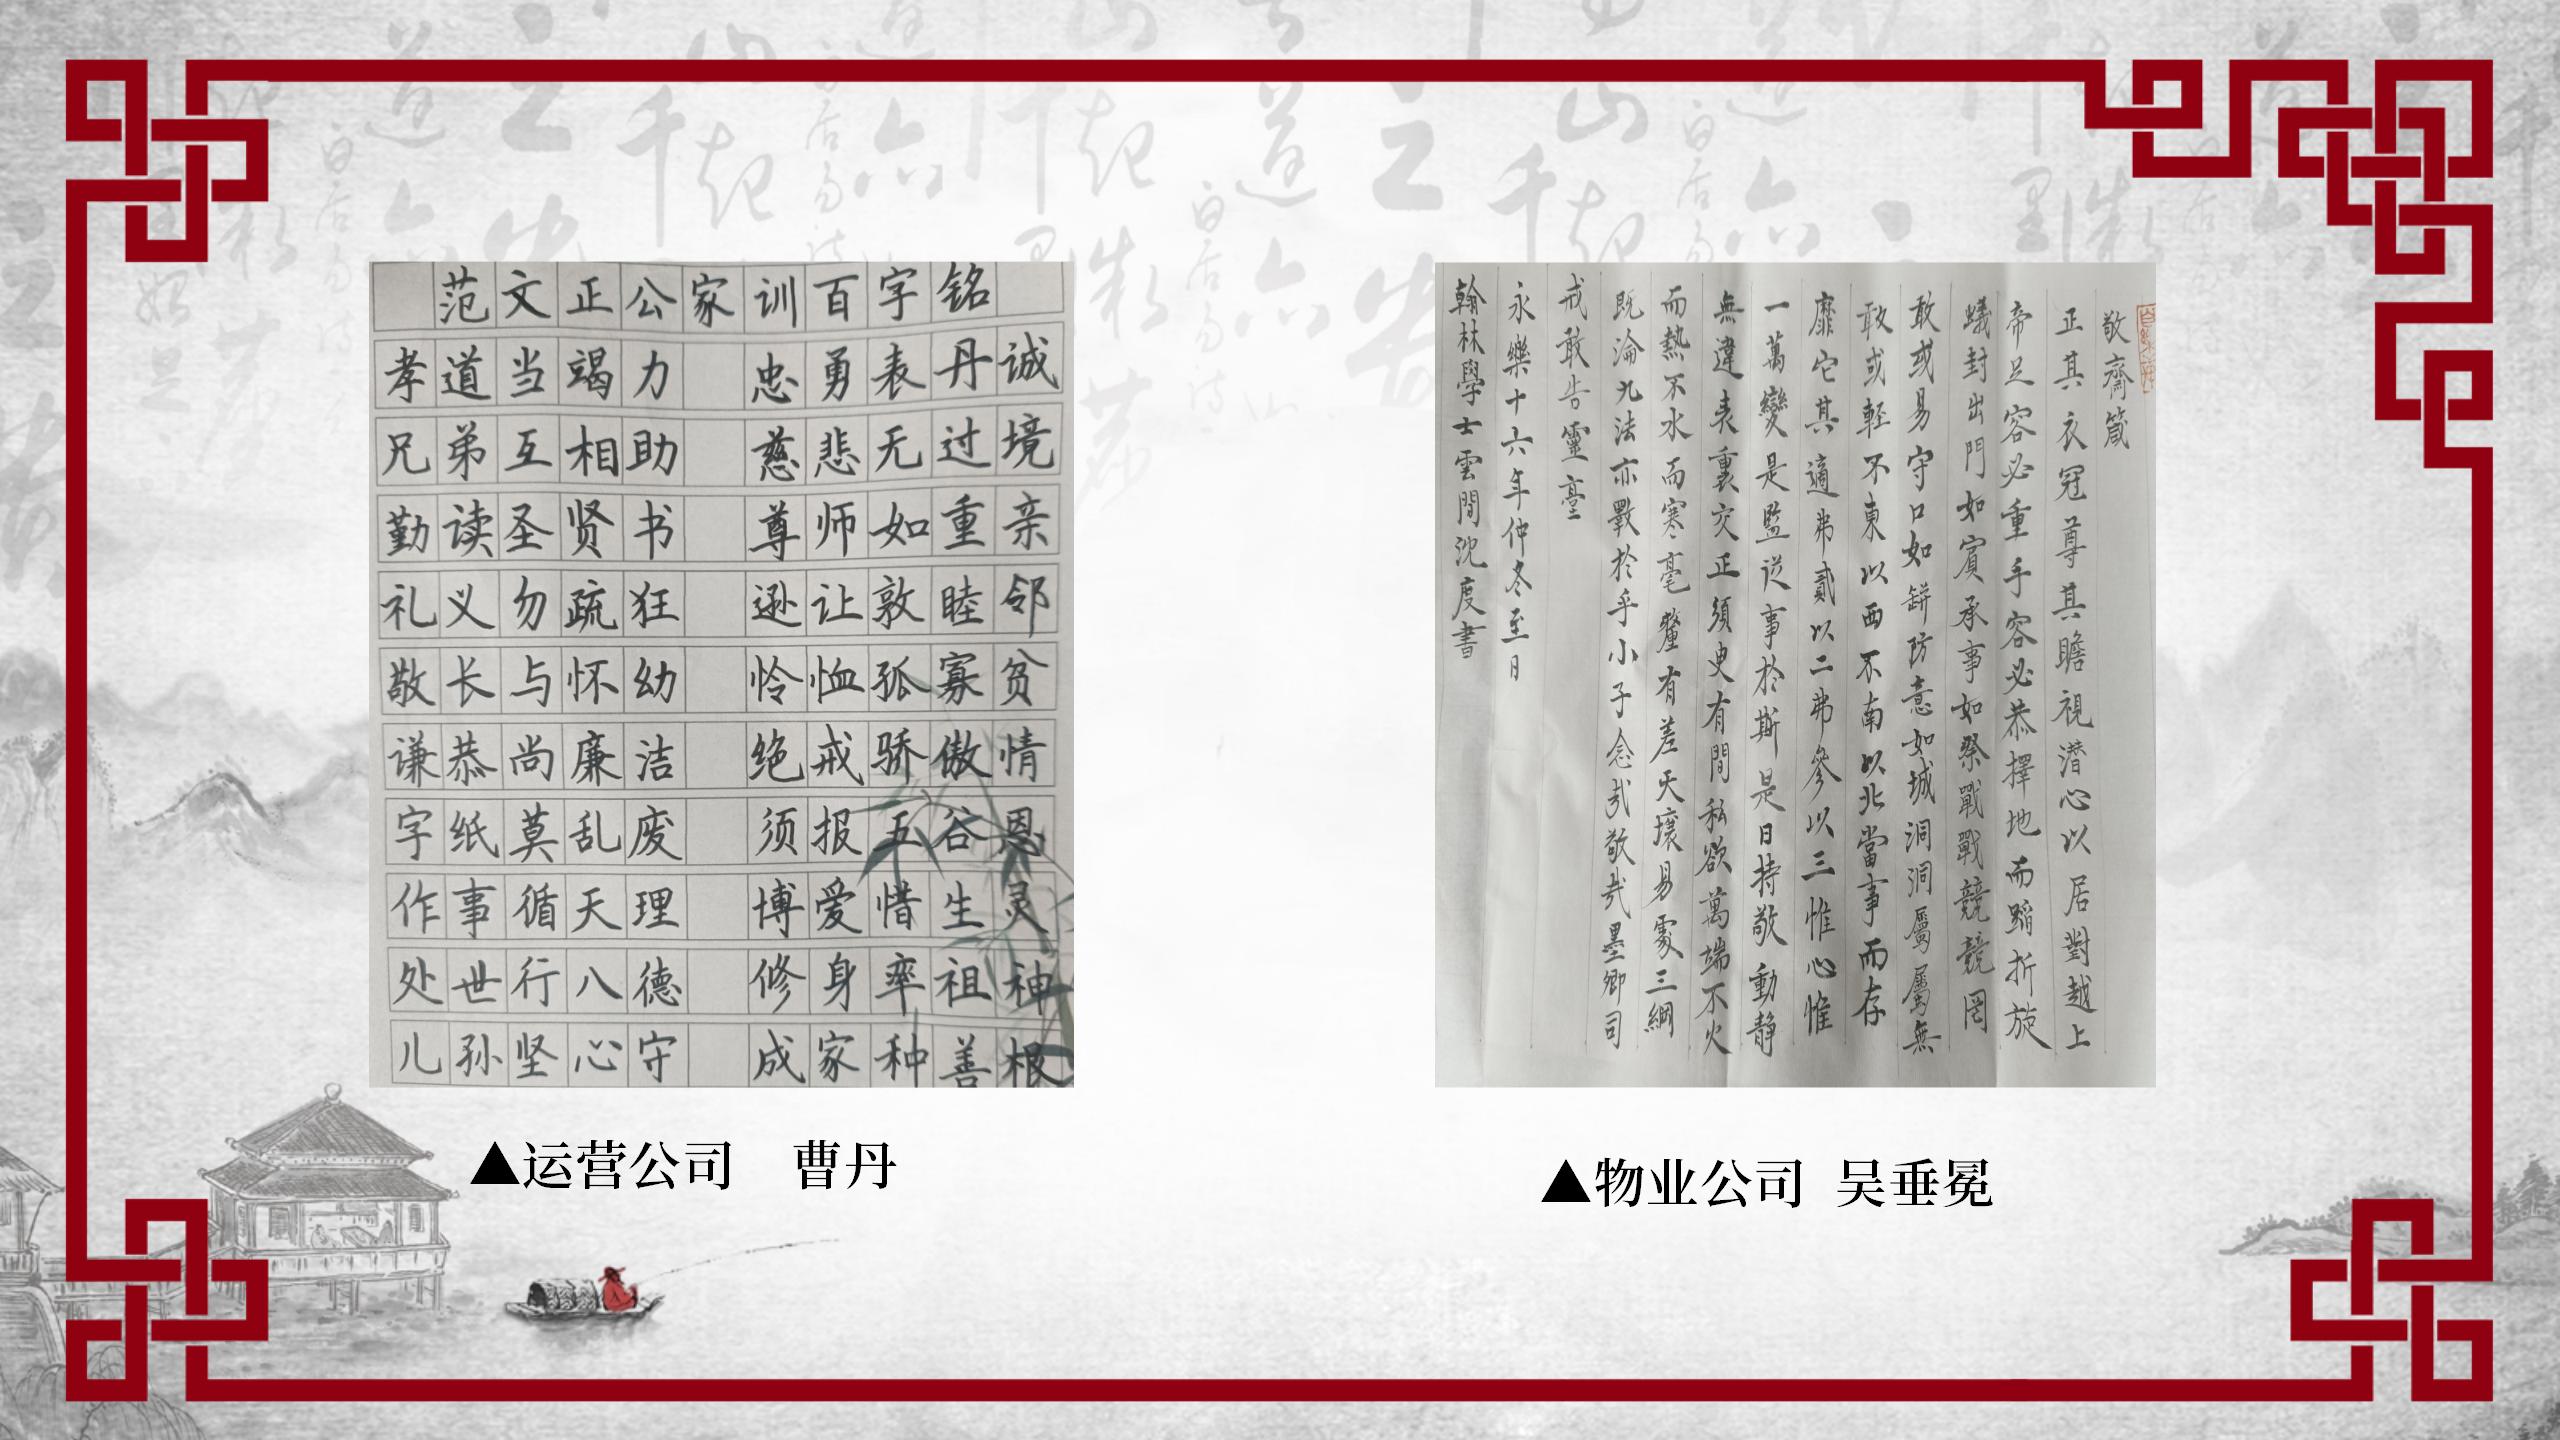 范文正公家训百字铭
孝道当竭力 忠勇表丹诚
兄弟互相助 慈悲无过境
勤读圣贤书 尊师如重亲
礼义勿疏狂 逊让敦睦邻
敬长与怀幼 怜恤孤寡贫
谦恭尚廉洁 绝戒骄傲情
字纸莫乱废 须报五谷恩
作事循天理 博爱惜生灵
处世行八德 修身率祖神
儿孙坚心守 成家种善根
▲运营公司 曹丹
敬齋箴
正其衣冠尊其瞻視潜心以居對越上
帝足容必重手容必恭擇地而蹈折旋
蟻封出門如賓承事如祭戰戰兢兢罔
敢或易守口如缾防意如城洞洞屬屬無
敢或輕不東以西不南以北當事而存
靡它其適弗貳以二弗參以三惟心惟
一萬變是監従事於斯是日持敬動静
無違表裏交正須臾有間私欲萬端不火
而熱不水而寒毫釐有差天壤易處三綱
既淪九法亦斁於乎小子念哉敬哉墨卿司
戒敢告靈臺
永樂十六年仲冬至日
翰林學士雲間沈度書
▲物业公司 吴垂冕